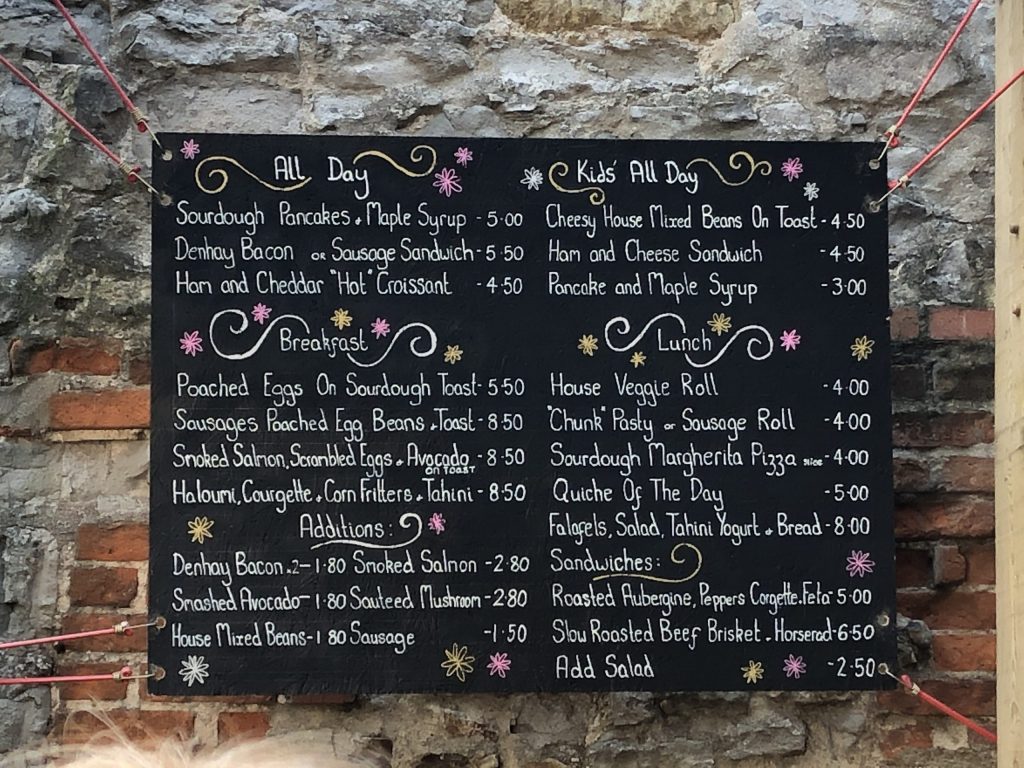 All Day
Sourdough Pancakes + Maple Syrup - 5.00
Denhay Bacon or Sausage Sandwich - 5.50
Ham and Cheddar "Hot" Croissant - 4.50
Breakfast
Poached Eggs On Sourdough Toast - 5.50
Sausages Poached Egg Beans + Toast - 8.50
Smoked Salmon, Scrambled Eggs + Avocado - 8.50
ON TOAST
Haloumi, Courgette + Corn Fritters + Tahini - 8.50
Additions:
Denhay Bacon x2 - 1.80 Smoked Salmon - 2.80
Smashed Avocado - 1.80 Sauteed Mushroom - 2.80
House Mixed Beans - 1.80 Sausage - 1.50
Kids' All Day
Cheesy House Mixed Beans On Toast - 4.50
Ham and Cheese Sandwich - 4.50
Pancake and Maple Syrup - 3.00
Lunch
House Veggie Roll - 4.00
"Chunk" Pasty or Sausage Roll - 4.00
Sourdough Margherita Pizza slice - 4.00
Quiche Of The Day - 5.00
Falafels, Salad, Tahini Yogurt + Bread - 8.00
Sandwiches:
Roasted Aubergine, Peppers Corgette + Feta - 5.00
Slow Roasted Beef Brisket + Horserad - 6.50
Add Salad - 2.50